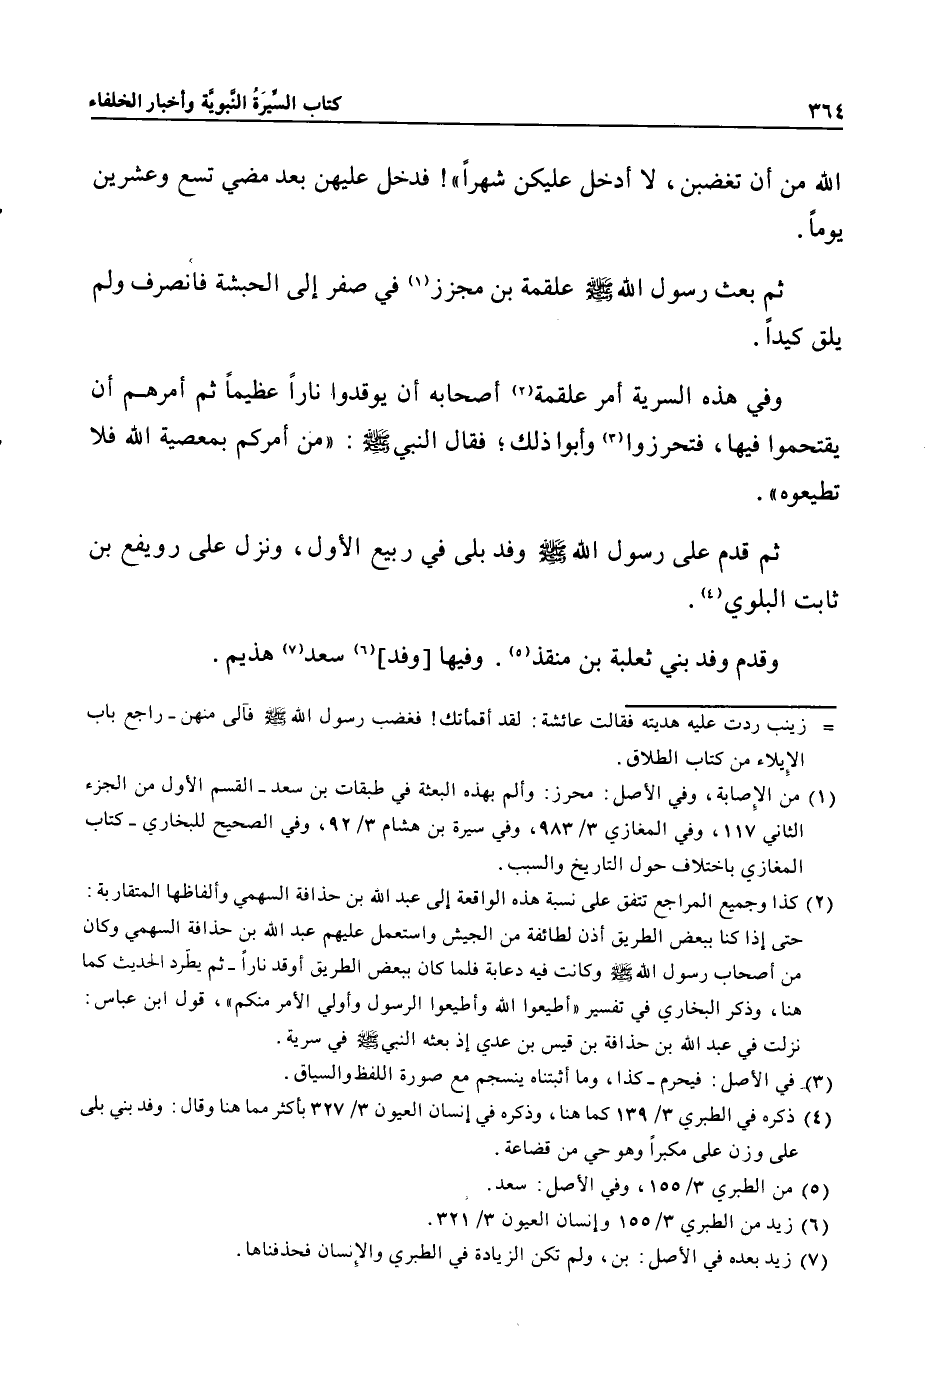 ٣٦٤ كتاب السِّيرَةُ النَّبويَّة وأخبار الخلفاء
الله من أن تغضبن، لا أدخل عليكن شهراً»! فدخل عليهن بعد مضي تسع وعشرين
يوماً.
ثم بعث رسول الله ﷺ علقمة بن مجزز(١) في صفر إلى الحبشة فانصرف ولم
يلق كيداً.
وفي هذه السرية أمر علقمة(٢) أصحابه أن يوقدوا ناراً عظيماً ثم أمرهم أن
يقتحموا فيها، فتحرزوا(٣) وأبوا ذلك؛ فقال النبي ﷺ: «من أمركم بمعصية الله فلا
تطيعوه».
ثم قدم على رسول الله ﷺ وفد بلى في ربيع الأول، ونزل على رويفع بن
ثابت البلوي(٤).
وقدم وفد بني ثعلبة بن منقذ(٥). وفيها [وفد](٦) سعد(٧) هذيم.
= زينب ردت عليه هديته فقالت عائشة: لقد أقمأتك! فغضب رسول الله ﷺ فآلى منهن ـ راجع باب
الإيلاء من كتاب الطلاق.
(١) من الإصابة، وفي الأصل: محرز: وألم بهذه البعثة في طبقات بن سعد ـ القسم الأول من الجزء
الثاني ١١٧، وفي المغازي ٣/ ٩٨٣، وفي سيرة بن هشام ٣/ ٩٢، وفي الصحيح للبخاري ـ كتاب
المغازي باختلاف حول التاريخ والسبب.
(٢) كذا وجميع المراجع تتفق على نسبة هذه الواقعة إلى عبد الله بن حذافة السهمي وألفاظها المتقاربة:
حتى إذا كنا ببعض الطريق أذن لطائفة من الجيش واستعمل عليهم عبد الله بن حذافة السهمي وكان
من أصحاب رسول الله ﷺ وكانت فيه دعابة فلما كان ببعض الطريق أوقد ناراً ـ ثم يطَّرد الحديث كما
هنا، وذكر البخاري في تفسير «أطيعوا الله وأطيعوا الرسول وأولي الأمر منكم»، قول ابن عباس:
نزلت في عبد الله بن حذافة بن قيس بن عدي إذ بعثه النبي ﷺ في سرية.
(٣) في الأصل: فيحرم ـ كذا، وما أثبتناه ينسجم مع صورة اللفظ والسياق.
(٤) ذكره في الطبري ٣/ ١٣٩ كما هنا، وذكره في إنسان العيون ٣/ ٣٢٧ بأكثر مما هنا وقال: وفد بني بلى
على وزن على مكبراً وهو حي من قضاعة.
(٥) من الطبري ٣/ ١٥٥، وفي الأصل: سعد.
(٦) زيد من الطبري ٣/ ١٥٥ وإنسان العيون ٣/ ٣٢١.
(٧) زيد بعده في الأصل: بن، ولم تكن الزيادة في الطبري والإنسان فحذفناها.